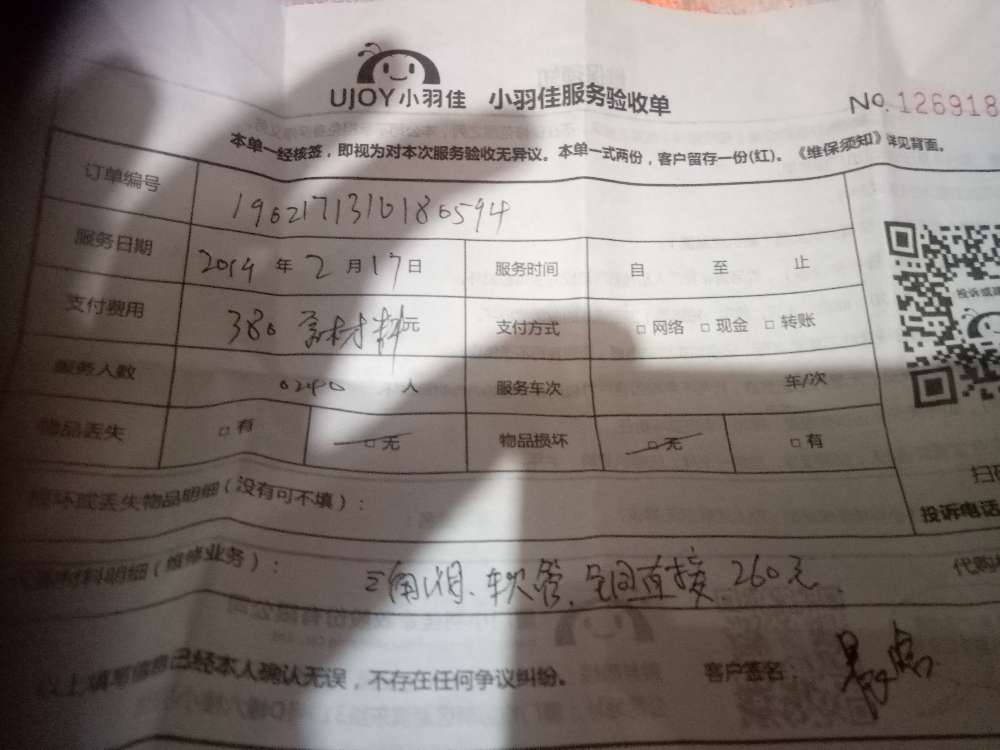 UJOY小羽佳 小羽佳服务验收单 No.126918
本单一经核签，即视为对本次服务验收无异议。本单一式两份，客户留存一份(红)。《维保须知》详见背面。
订单编号 1902171310180594
服务日期 2019年2月17日 服务时间 自 至 止
支付费用 380 含材料元 支付方式 □网络 □现金 □转账
服务人数 0240 人 服务车次 车/次
物品丢失 □有 □无 物品损坏 □无 □有
损坏或丢失物品明细(没有可不填)：
投诉电话
材料明细(维修业务)： 三角阀、软管、铜直接 260元 代购
以上填写信息已经本人确认无误，不存在任何争议纠纷。 客户签名：